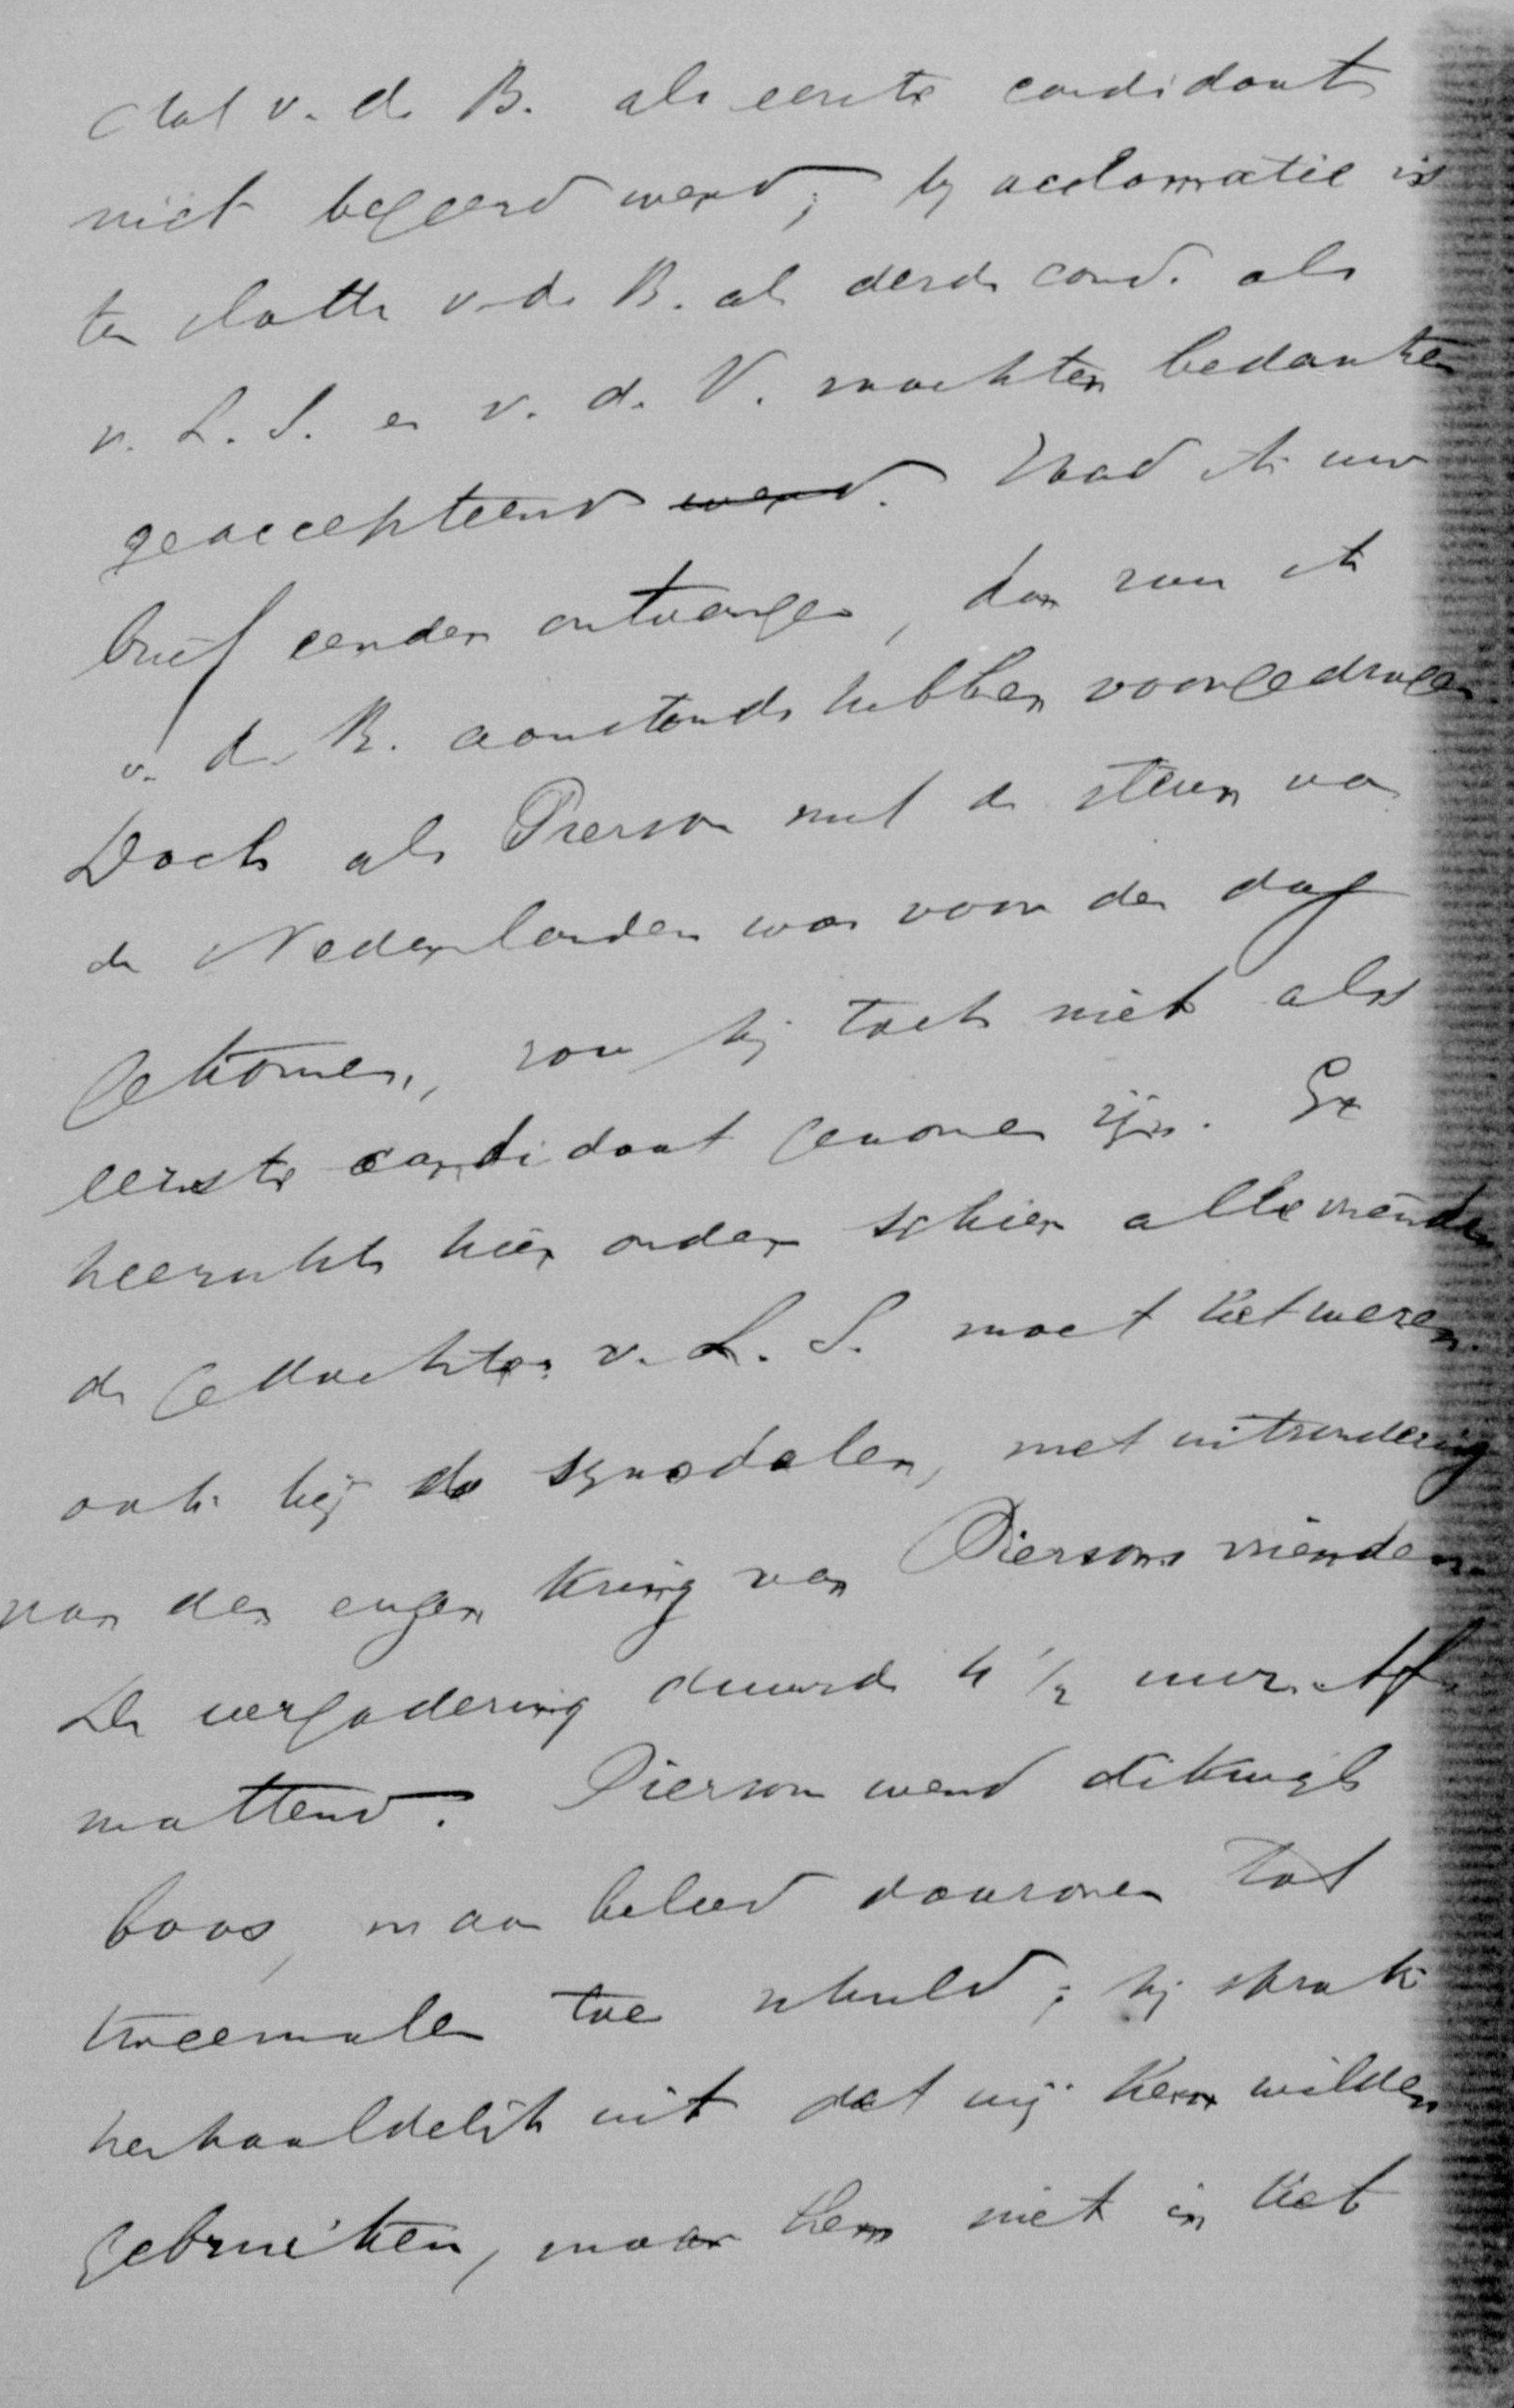 dat v. d. B. als eerste candidaat
niet begeerd werd; bij acclamatie is
ten slotte v. d. B. als derde cand. als
v. L. S. en v. d. V. mochten bedanken
geaccepteerd werd. Had ik uw
brief eerder ontvangen, dan zou ik
v. d. B. aanstonds hebben voorgedragen
Doch als Pierson met de steun van
de Nederlander was voor den dag
gekomen, zou hij toch niet als
eerste candidaat genomen zijn. Er
heerscht hier onder schier alle vrienden
de gedachte: v. L. S. moet het wezen.
ook bij de synodalen, met uitzondering
van den engen kring van Piersons vrienden.
De vergadering duurde 4 1/2 uur. Af-
mattend. Pierson werd dikwijls
boos, maar beleed daarover tot
tweemalen toe schuld; hij sprak
herhaaldelijk uit dat wij hem wilden
gebruiken, maar hem niet in het